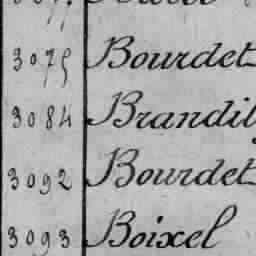 3075 Bourdet
3084
3092 Bourdet
3093 Boixel